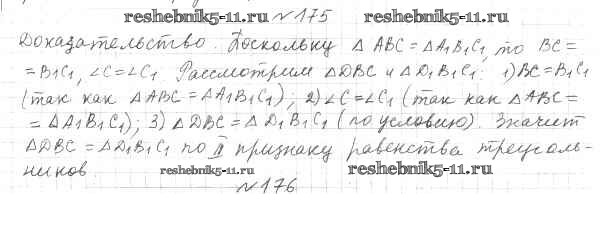 reshebnik5-11.ru №175 reshebnik5-11.ru
Доказательство. Поскольку △ ABC = △A₁B₁C₁, то BC =
= B₁C₁, ∠C=∠C₁. Рассмотрим △DBC и △D₁B₁C₁: 1) BC=B₁C₁
(так как △ABC = △A₁B₁C₁); 2) ∠C=∠C₁ (так как △ABC =
= △A₁B₁C₁); 3) △DBC = △D₁B₁C₁ (по условию). Значит
△DBC = △D₁B₁C₁ по II признаку равенства треуголь-
ников reshebnik5-11.ru reshebnik5-11.ru
№176